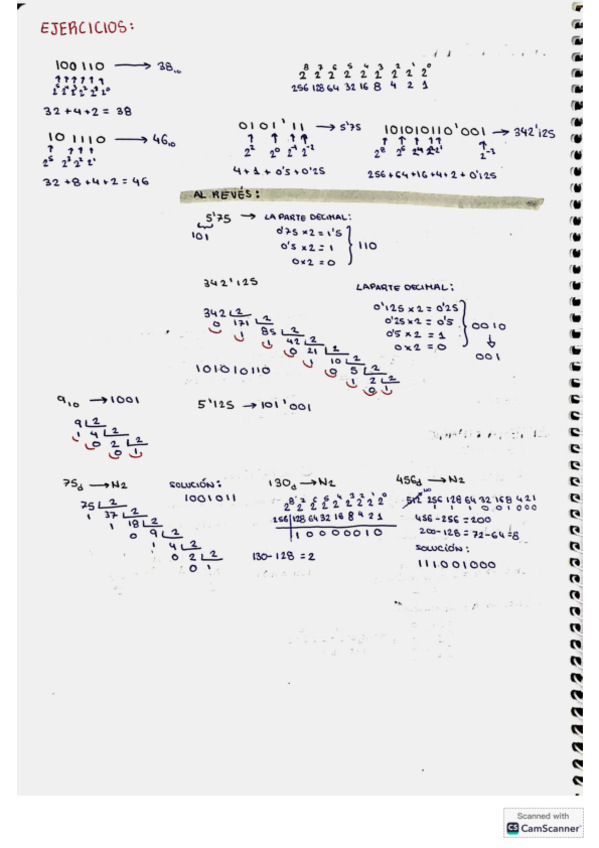 EJERCICIOS:
100110 → 38₁₀
2⁵ 2⁴ 2³ 2² 2¹ 2⁰
32 + 4 + 2 = 38
2⁸ 2⁷ 2⁶ 2⁵ 2⁴ 2³ 2² 2¹ 2⁰
256 128 64 32 16 8 4 2 1
101110 → 46₁₀
2⁵ 2³ 2² 2¹
32 + 8 + 4 + 2 = 46
0101'11 → 5'75
2² 2⁰ 2⁻¹ 2⁻²
4 + 1 + 0'5 + 0'25
101010110'001 → 342'125
2⁸ 2⁶ 2⁴ 2² 2¹ 2⁻³
256 + 64 + 16 + 4 + 2 + 0'125
AL REVÉS:
5'75 → LA PARTE DECIMAL:
101
0'75 x 2 = 1'5
0'5 x 2 = 1
0 x 2 = 0
110
342'125
LA PARTE DECIMAL:
0'125 x 2 = 0'25
0'25 x 2 = 0'5
0'5 x 2 = 1
0 x 2 = 0
0010
↓
001
342 2
0 171 2
1 85 2
1 42 2
0 21 2
1 10 2
0 5 2
1 2 2
0 1
101010110
9₁₀ → 1001
9 2
1 4 2
0 2 2
0 1
5'125 → 101'001
75d → N2
75 2
1 37 2
1 18 2
0 9 2
1 4 2
0 2 2
0 1
SOLUCIÓN:
1001011
130d → N2
2⁸ 2⁷ 2⁶ 2⁵ 2⁴ 2³ 2² 2¹ 2⁰
256 128 64 32 16 8 4 2 1
1 0 0 0 0 0 1 0
130 - 128 = 2
456d → N2
512 256 128 64 32 16 8 4 2 1
1 1 1 0 0 1 0 0 0
456 - 256 = 200
200 - 128 = 72 - 64 = 8
SOLUCIÓN:
111001000
Scanned with
CS CamScanner